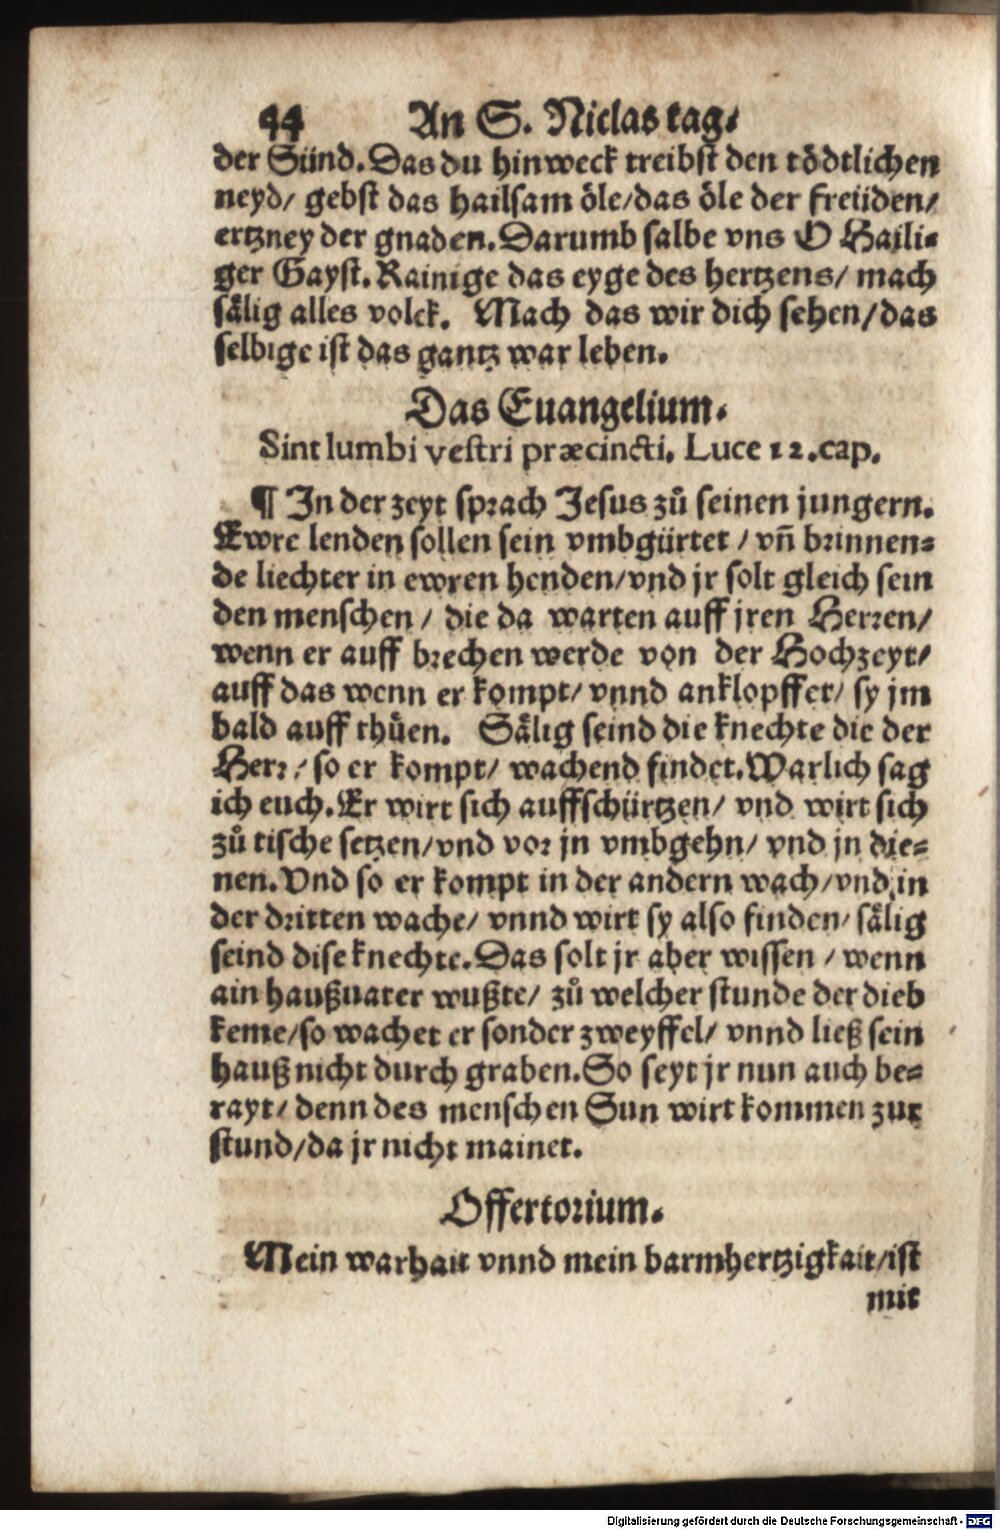 44 An S. Niclas tag.
der Sünd. Das du hinweck treibst den tödtlichen
neyd/ gebst das hailsam öle/das öle der freüden/
ertzney der gnaden. Darumb salbe vns O Haili-
ger Gayst. Rainige das eyge des hertzens/ mach
sälig alles volck. Mach das wir dich sehen/das
selbige ist das gantz war leben.
Das Euangelium.
Sint lumbi vestri præcincti. Luce 12.cap.
¶ In der zeyt sprach Jesus zů seinen jungern.
Ewre lenden sollen sein vmbgürtet / vñ brinnen-
de liechter in ewren henden/vnd jr solt gleich sein
den menschen / die da warten auff jren Herren/
wenn er auff brechen werde von der Hochzeyt/
auff das wenn er kompt/ vnnd anklopffet/ sy jm
bald auff thüen. Sälig seind die knechte die der
Herr / so er kompt/ wachend findet. Warlich sag
ich euch. Er wirt sich auffschürtzen/ vnd wirt sich
zů tische setzen/vnd vor jn vmbgehn/ vnd jn die-
nen. Vnd so er kompt in der andern wach/vnd in
der dritten wache/ vnnd wirt sy also finden/ sälig
seind dise knechte. Das solt jr aber wissen / wenn
ain haußuater wußte/ zů welcher stunde der dieb
keme/so wachet er sonder zweyffel/ vnnd ließ sein
hauß nicht durch graben. So seyt jr nun auch be-
rayt/ denn des menschen Sun wirt kommen zur
stund/da jr nicht mainet.
Offertorium.
Mein warhait vnnd mein barmhertzigkait/ist
mit
Digitalisierung gefördert durch die Deutsche Forschungsgemeinschaft - DFG